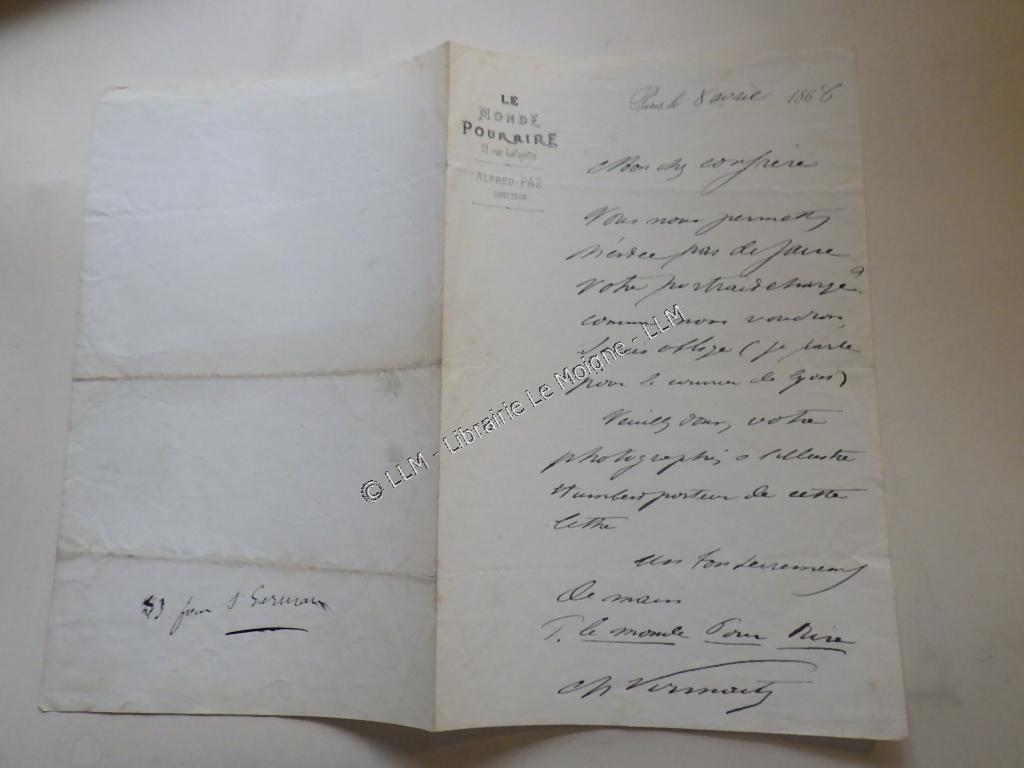 LE
MONDE
POUR RIRE
53 rue Lafayette
ALFRED PAZ
DIRECTEUR
Paris le 8 avril 1868
Mon cher confrère
Vous nous permettez
n'est-ce pas de faire
votre portrait charge
comme nous voudrons,
obligé (je parle
pour le courrier de Lyon)
Veuillez donner votre
photographie à l'illustre
Humbert porteur de cette
lettre
un bon serrement
de main
P. le monde Pour Rire
Ch Virmaitre
23. faub St Germain
© LLM - Librairie Le Moigne - LLM